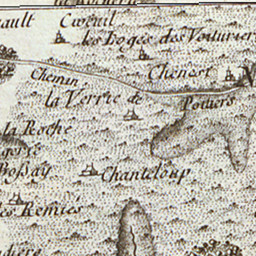 ault
Cweuil
les Loges des Voituriers
Chemin
Chenert
la Verrie de
Poitiers
la Roche
Possay
Chanteloup
les Remiés